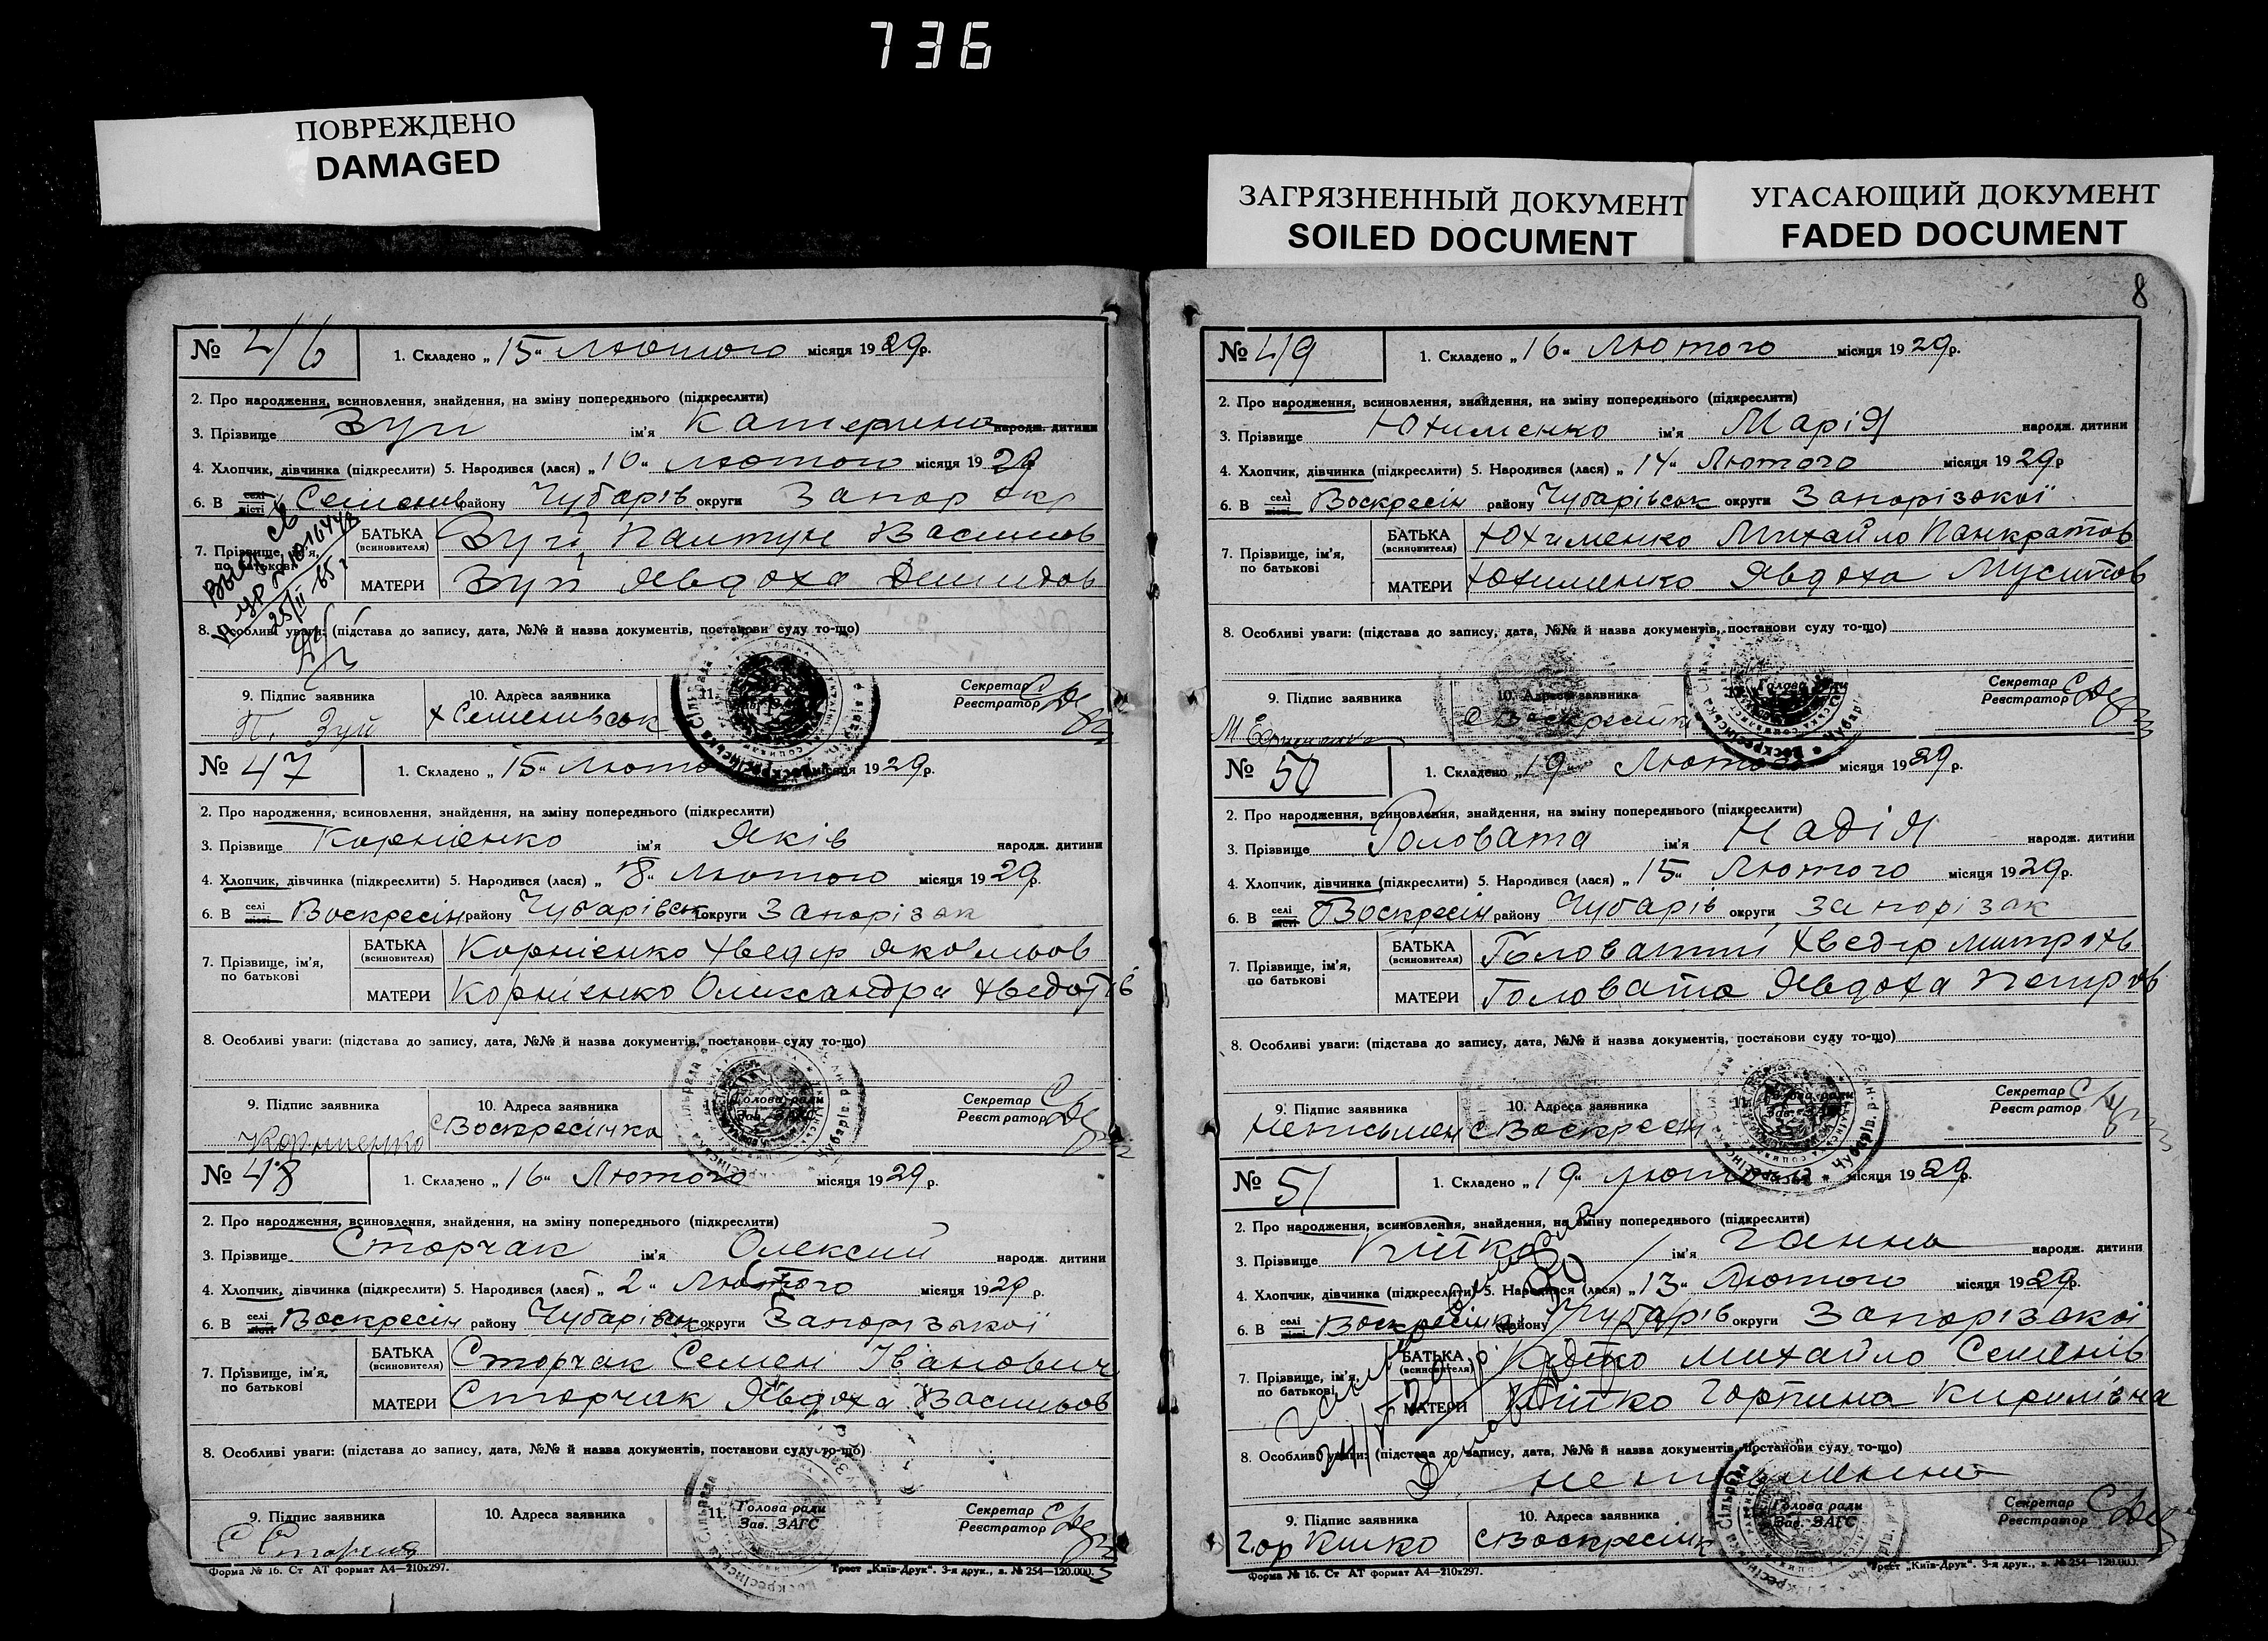 736
ПОВРЕЖДЕНО
DAMAGED
ЗАГРЯЗНЕННЫЙ ДОКУМЕНТ
SOILED DOCUMENT
УГАСАЮЩИЙ ДОКУМЕНТ
FADED DOCUMENT
№ 46 1. Складено „15“ Лютого місяця 1929р.
2. Про народження, всиновлення, знайдення, на зміну попереднього (підкреслити)
3. Прізвище Зуй ім'я Катерина народж. дитини
4. Хлопчик, дівчинка (підкреслити) 5. Народився (лася) „10“ лютого місяця 1929
6. В селі місті Семенів району Чубарів округи Запор окр
7. Прізвище, ім'я, по батькові
БАТЬКА (всиновителя) Зуй Василов
МАТЕРИ Зуй Явдоха Демидов
25/II 65 г
8. Особливі уваги: (підстава до запису, дата, №№ й назва документів, постанови суду то-що)
9. Підпис заявника 10. Адреса заявника 11. Секретар Реєстратор
П. Зуй х Семенивськ
№ 47 1. Складено „15“ Люто місяця 1929р.
2. Про народження, всиновлення, знайдення, на зміну попереднього (підкреслити)
3. Прізвище Корнієнко ім'я Яків народж. дитини
4. Хлопчик, дівчинка (підкреслити) 5. Народився (лася) „8“ Лютого місяця 1929р.
6. В селі місті Воскресін району Чубарівськ округи Запорізьк
7. Прізвище, ім'я, по батькові
БАТЬКА (всиновителя) Корнієнко Хведір Яковльов
МАТЕРИ Корнієнко Олександра Хведотів
8. Особливі уваги: (підстава до запису, дата, №№ й назва документів, постанови суду то-що)
9. Підпис заявника 10. Адреса заявника 11. Голова ради Зав. ЗАГС Секретар Реєстратор
Корниенко с Воскресінка
№ 48 1. Складено „16“ Лютого місяця 1929р.
2. Про народження, всиновлення, знайдення, на зміну попереднього (підкреслити)
3. Прізвище Сторчак ім'я Олексий народж. дитини
4. Хлопчик, дівчинка (підкреслити) 5. Народився (лася) „2“ Лютого місяця 1929 р.
6. В селі місті Воскресін району Чубарівськ округи Запорізької
7. Прізвище, ім'я, по батькові
БАТЬКА (всиновителя) Сторчак Семен Іванович
МАТЕРИ Сторчак Явдоха Васильов
8. Особливі уваги: (підстава до запису, дата, №№ й назва документів, постанови суду то-що)
9. Підпис заявника 10. Адреса заявника 11. Голова ради Зав. ЗАГС Секретар Реєстратор
Форма № 16. Ст АТ формат А4—210x297. Трест „Київ-Друк“. 3-я друк., в. № 254—120.000.
8
№ 49 1. Складено „16“ Лютого місяця 1929р.
2. Про народження, всиновлення, знайдення, на зміну попереднього (підкреслити)
3. Прізвище Юхименко ім'я Марія народж. дитини
4. Хлопчик, дівчинка (підкреслити) 5. Народився (лася) „14“ Лютого місяця 1929р
6. В селі місті Воскресін району Чубарівськ округи Запорізької
7. Прізвище, ім'я, по батькові
БАТЬКА (всиновителя) Юхименко Михайло Панкратов
МАТЕРИ Юхименко Явдоха
8. Особливі уваги: (підстава до запису, дата, №№ й назва документів, постанови суду то-що)
9. Підпис заявника 10. Адреса заявника 11. Голова ради Секретар Реєстратор
с Воскресінк
№ 50 1. Складено „19“ Лютого місяця 1929р.
2. Про народження, всиновлення, знайдення, на зміну попереднього (підкреслити)
3. Прізвище Головата ім'я Надія народж. дитини
4. Хлопчик, дівчинка (підкреслити) 5. Народився (лася) „15“ Лютого місяця 1929р.
6. В селі місті Воскресін району Чубарів округи Запорізьк
7. Прізвище, ім'я, по батькові
БАТЬКА (всиновителя) Головатий Хведір
МАТЕРИ Головата Явдоха Петров
8. Особливі уваги: (підстава до запису, дата, №№ й назва документів, постанови суду то-що)
9. Підпис заявника 10. Адреса заявника 11. Голова ради Зав. ЗАГС Секретар Реєстратор
Неписьмен с Воскресен
№ 51 1. Складено „19“ Лютого місяця 1929р.
2. Про народження, всиновлення, знайдення, на зміну попереднього (підкреслити)
3. Прізвище Кітко ім'я Ганна народж. дитини
4. Хлопчик, дівчинка (підкреслити) 5. Народився (лася) „13“ Лютого місяця 1929р.
6. В селі місті Воскресінк району Чубарів округи Запорізької
7. Прізвище, ім'я, по батькові
БАТЬКА (всиновителя) Кітко Михайло Семенів
МАТЕРИ Кітко Горпина Кирилівна
8. Особливі уваги: (підстава до запису, дата, №№ й назва документів, постанови суду то-що)
9. Підпис заявника 10. Адреса заявника Голова ради Зав. ЗАГС Секретар Реєстратор
Гор Китко с Воскресінк
Форма № 16. Ст АТ формат А4—210x297. Трест „Київ-Друк“. 3-я друк., в. № 254—120.000.